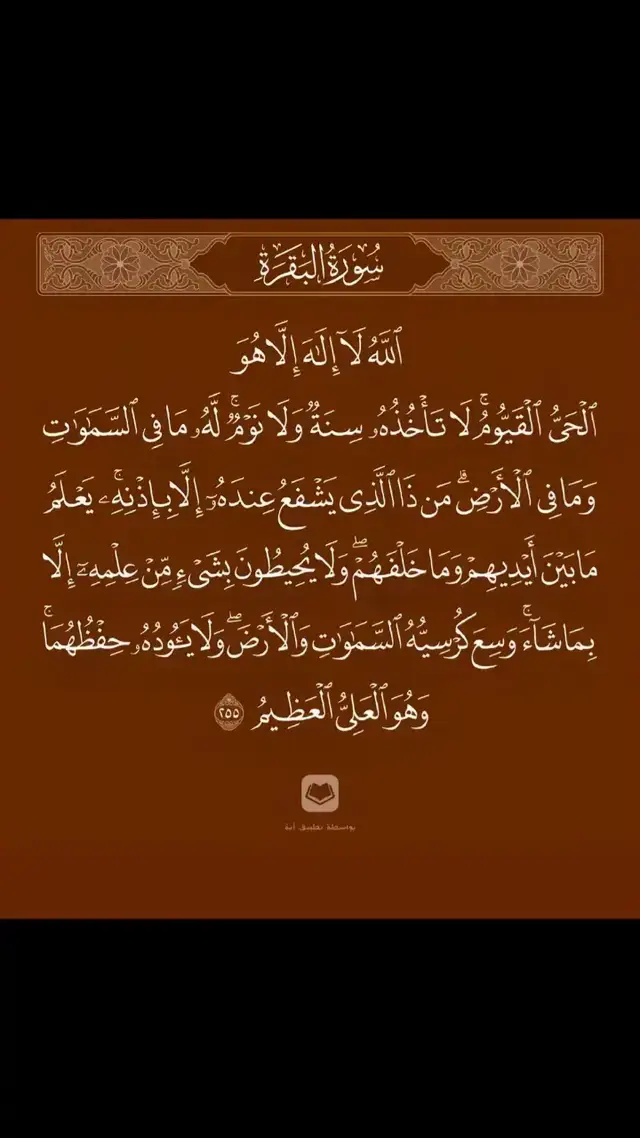 سُورَةُ البَقَرَةِ
ٱللَّهُ لَآ إِلَٰهَ إِلَّا هُوَ
ٱلۡحَيُّ ٱلۡقَيُّومُۚ لَا تَأۡخُذُهُۥ سِنَةٞ وَلَا نَوۡمٞۚ لَّهُۥ مَا فِي ٱلسَّمَٰوَٰتِ
وَمَا فِي ٱلۡأَرۡضِۗ مَن ذَا ٱلَّذِي يَشۡفَعُ عِندَهُۥٓ إِلَّا بِإِذۡنِهِۦۚ يَعۡلَمُ
مَا بَيۡنَ أَيۡدِيهِمۡ وَمَا خَلۡفَهُمۡۖ وَلَا يُحِيطُونَ بِشَيۡءٖ مِّنۡ عِلۡمِهِۦٓ إِلَّا
بِمَا شَآءَۚ وَسِعَ كُرۡسِيُّهُ ٱلسَّمَٰوَٰتِ وَٱلۡأَرۡضَۖ وَلَا يَـُٔودُهُۥ حِفۡظُهُمَاۚ
وَهُوَ ٱلۡعَلِيُّ ٱلۡعَظِيمُ ٢٥٥
بواسطة تطبيق آية